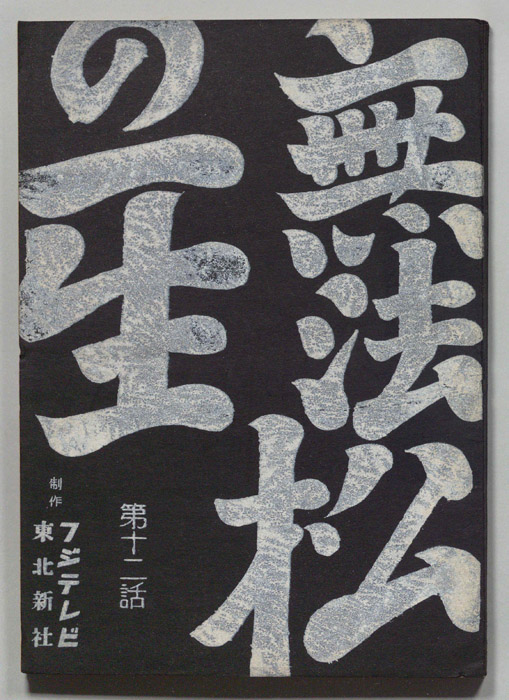 無法松
の一生
第十二話
制作
フジテレビ
東北新社